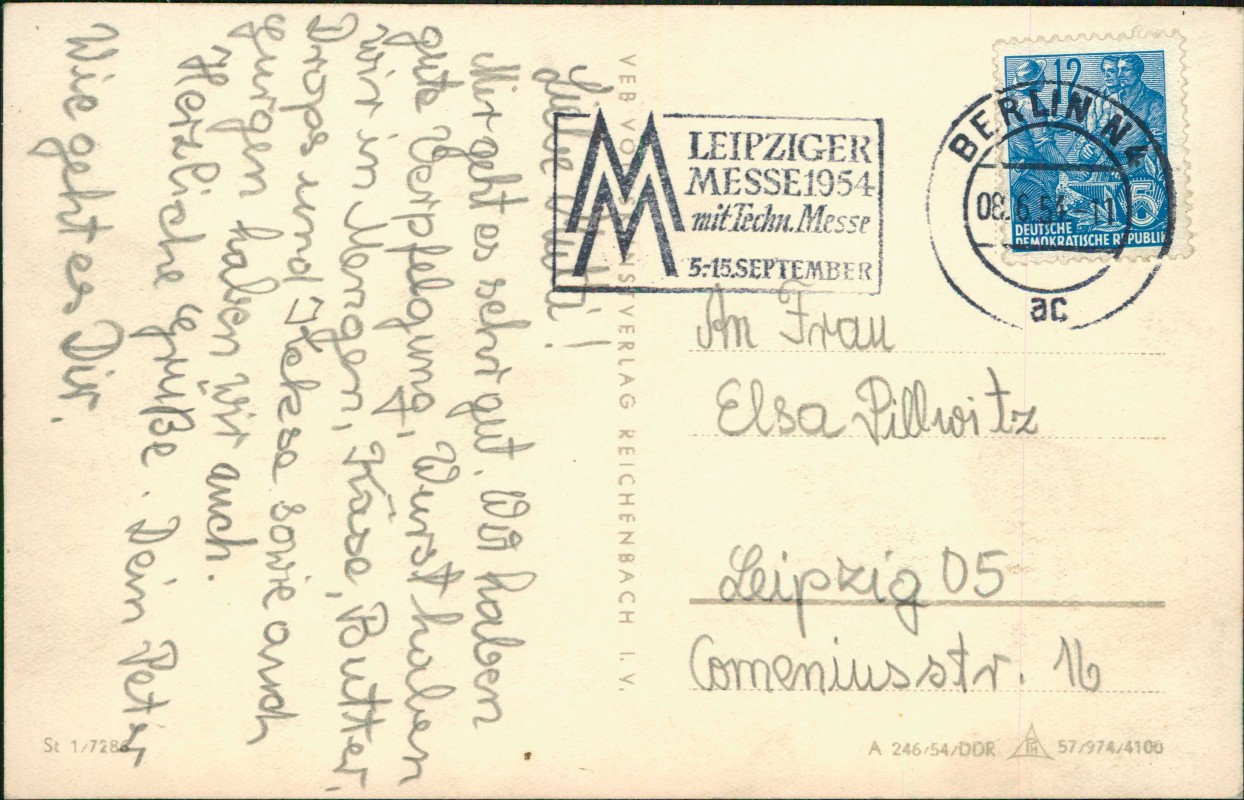 Liebe Mutti!
Mir geht es sehr gut. Wir haben
gute Verpfelgung, Wurst haben
wir in Mengen, Käse, Butter,
Drops und Kekse sowie auch
gurgen haben wir auch.
Herzliche grüße. Dein Peter
Wie geht es Dir.
St 1/728
VEB VOLKSKUNSTVERLAG REICHENBACH I. V.
LEIPZIGER
MESSE 1954
mit Techn. Messe
5.-15. SEPTEMBER
12
BERLIN N 4
08.6.54. 11
5
DEUTSCHE
DEMOKRATISCHE REPUBLIK
ac
An Frau
Elsa Pillwitz
Leipzig O5
Comeniusstr. 16
A 246/54/DDR
57/974/4100